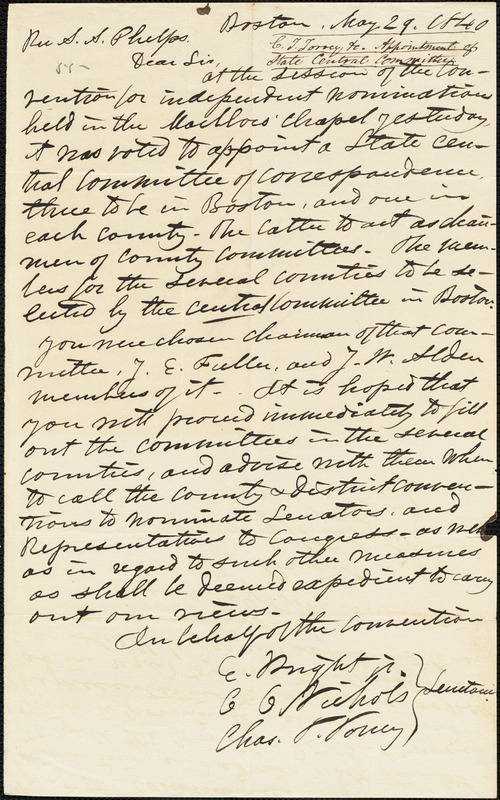 Boston, May 29. 1840
Rev S. A. Phelps.
C. T. Torrey, &c. Appointment of
State Central Committee.
Dear Sir,
at the session of the Con-
vention for independent nominations
held in the Marlboro' Chapel yesterday,
it was voted to appoint a State cen-
tral Committee of correspondence,
three to be in Boston, and one in
each county. The latter to act as chair-
men of county committees. The mem-
bers for the several counties to be se-
lected by the central Committee in Boston
You were chosen chairman of that com-
mittee, J. E. Fuller, and J. W. Alden
members of it. It is hoped that
you will proceed immediately to fill
out the committees in the several
counties, and advise with them when
to call the county & district conven-
tions to nominate Senators, and
Representatives to Congress - as well
as in regard to such other measures
as shall be deemed expedient to carry
out our views.
In behalf of the convention
E. Wright jr.
C C Nichols
Chas. T. Torrey